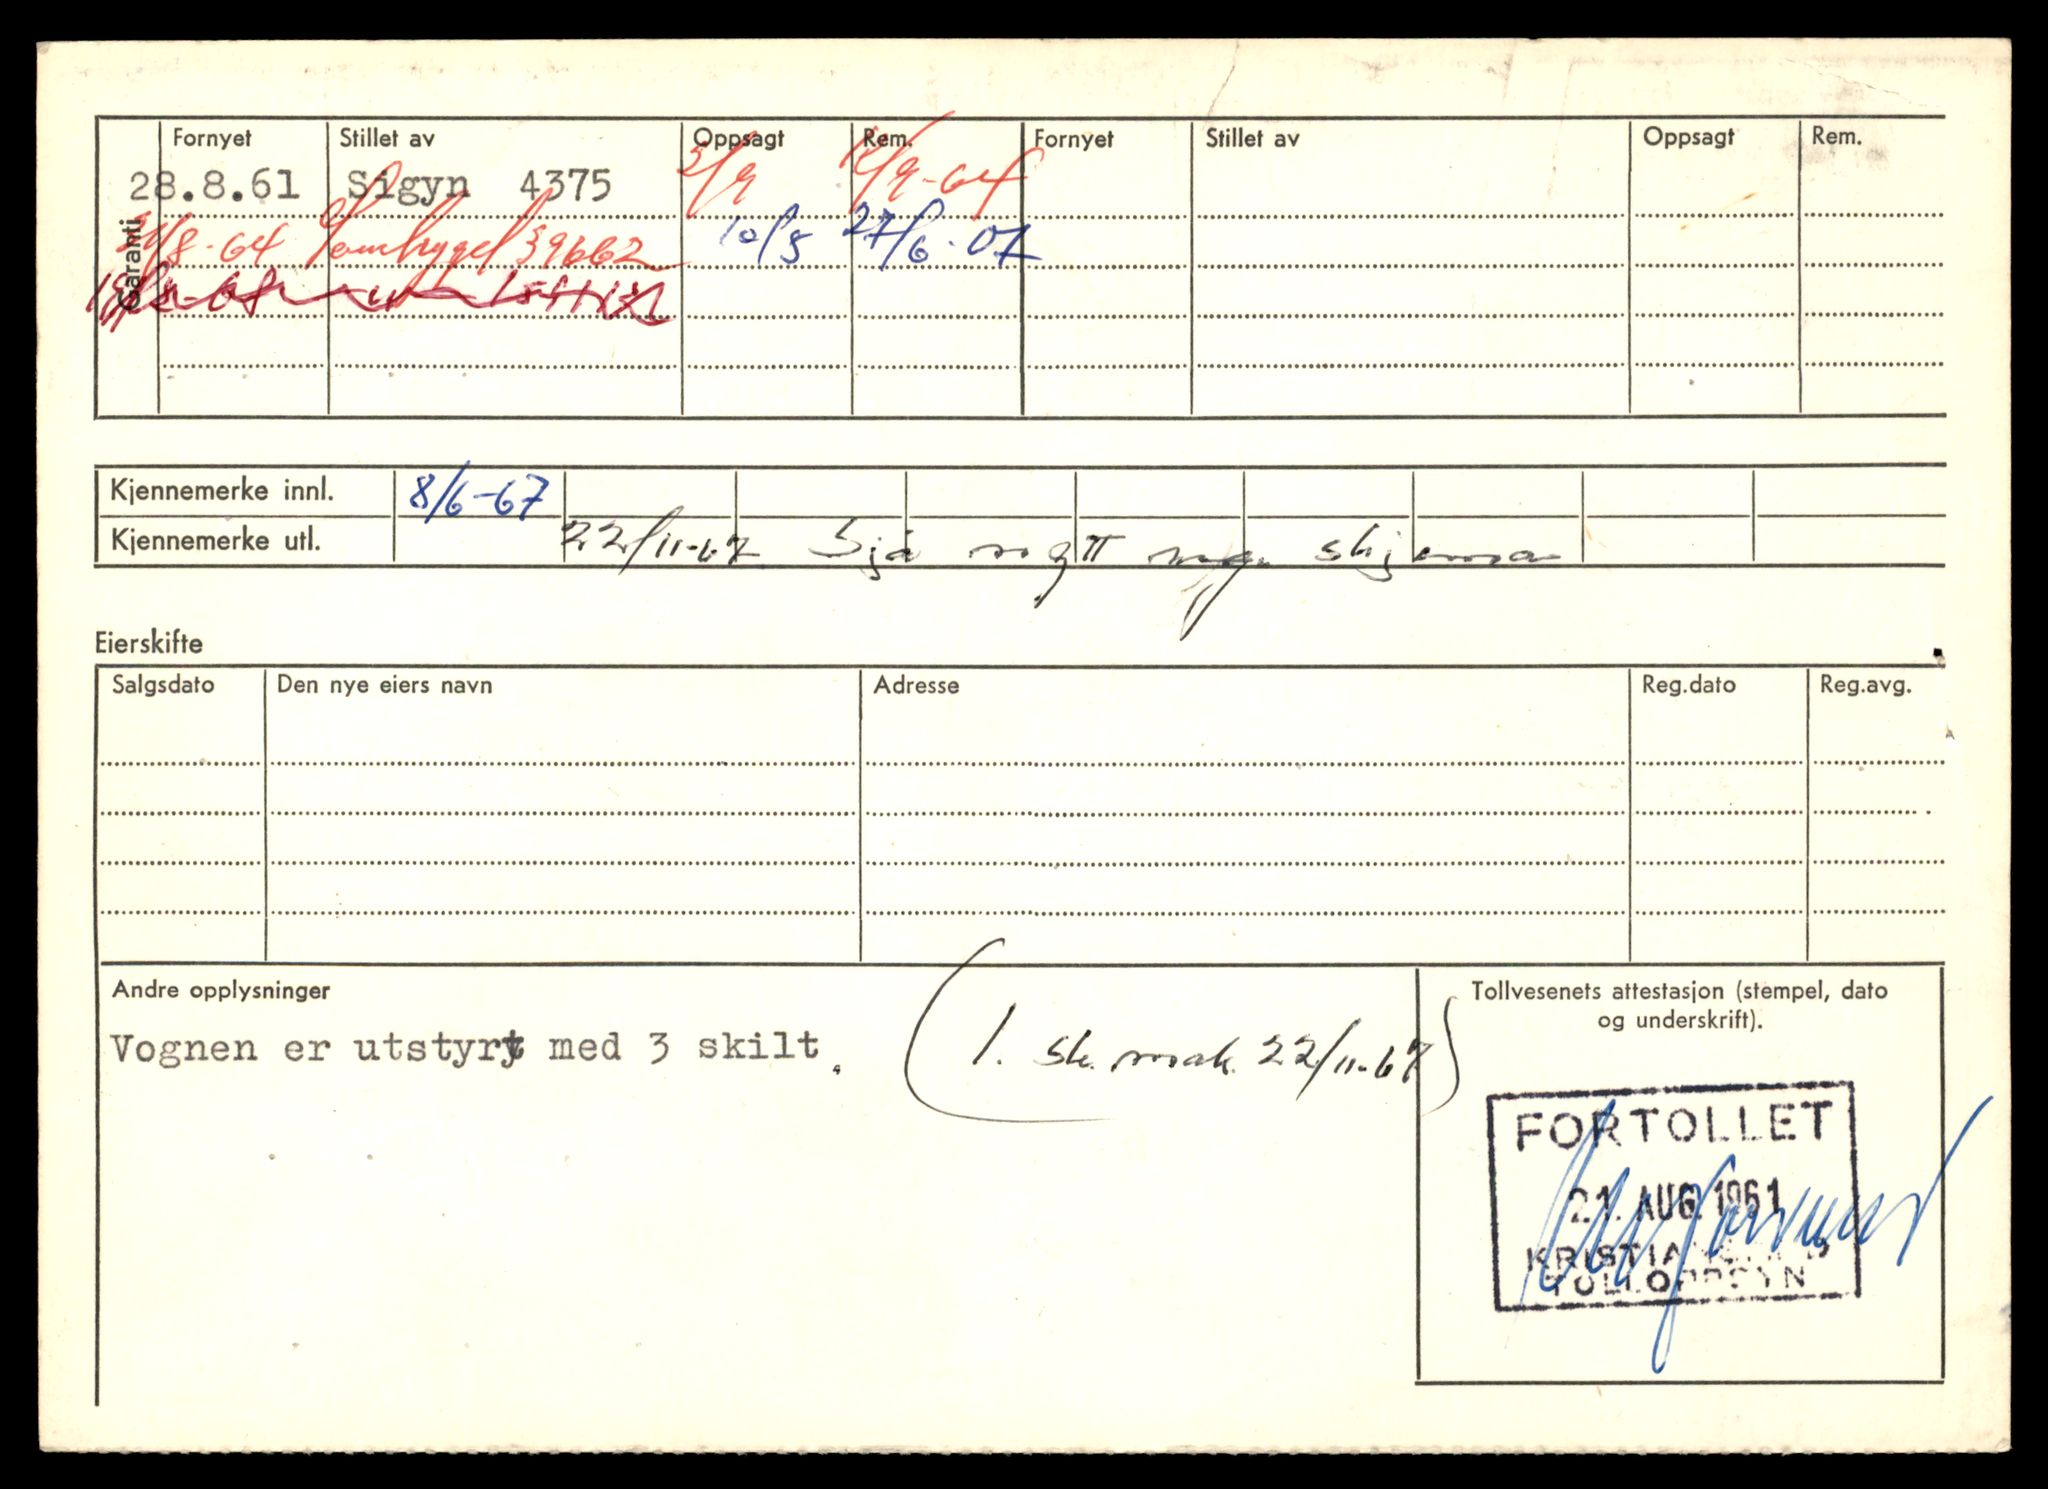 Garanti
Fornyet Stillet av Oppsagt Rem. Fornyet Stillet av Oppsagt Rem.
28.8.61 Sigyn 4375 3/9 14/9-64
31/8-64 Samtrygd 39662 10/5 27/6-67
Kjennemerke innl. 8/6-67
Kjennemerke utl. 22/11-67 Sjå nytt skjema
Eierskifte
Salgsdato Den nye eiers navn Adresse Reg.dato Reg.avg.
Andre opplysninger
Vognen er utstyrt med 3 skilt. (1. sk. mak. 22/11-67)
Tollvesenets attestasjon (stempel, dato
og underskrift).
FORTOLLET
21. AUG 1961
KRISTIANSUND
TOLLOPPSYN